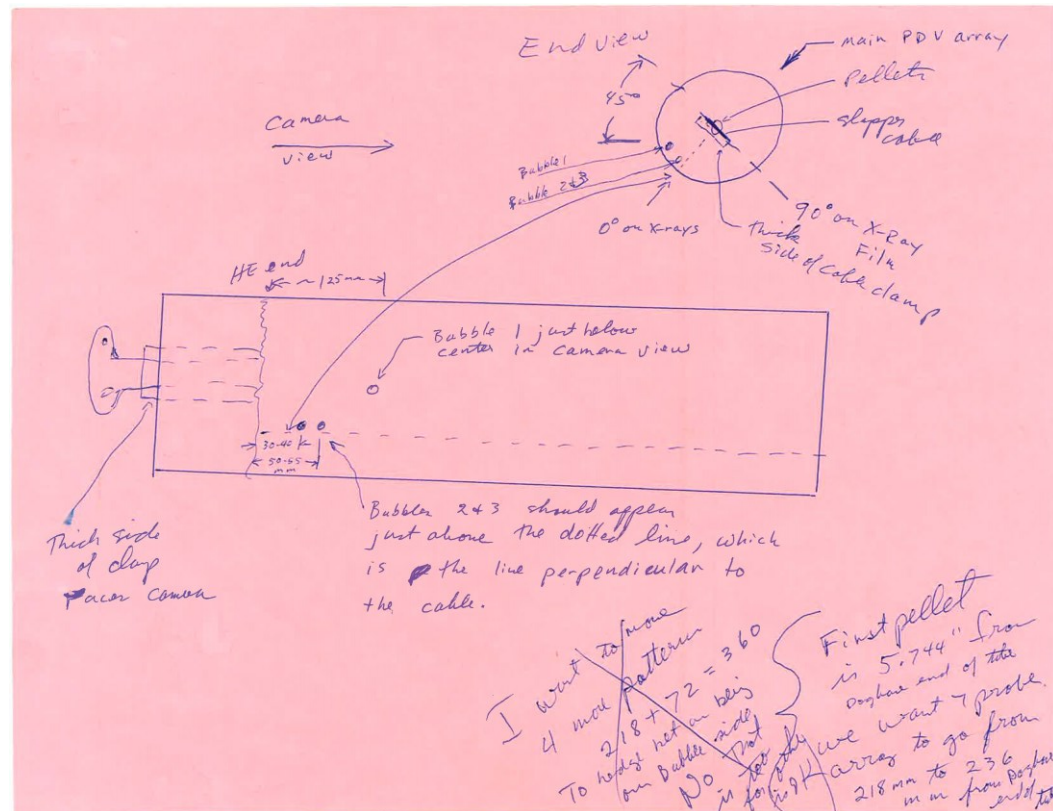 End view
main PDV array
Pellets
slapper
cable
45°
Camera
view
Bubble 1
Bubble 2&3
0° on X-rays
90° on X-Ray
Film
thick
side of cable clamp
HE end
~125mm
Bubble 1 just below
center in camera view
30-40
50-55
mm
Thick side
of clamp
faces camera
Bubbles 2&3 should appear
just above the dotted line, which
is the line perpendicular to
the cable.
I want to move
4 more pattern
218 + 72 = 360
To hedge bet on being
over Bubble side
No that
is
for other
First pellet
is 5.744" from
Doghouse end of tube
we want 7 probe
array to go from
218 mm to 236
mm from Doghouse
end of tube